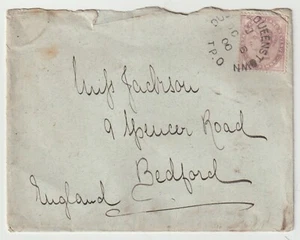 Miss Jackson
9 Spencer Road
Bedford
England
QUEENSTOWN
T.P.O